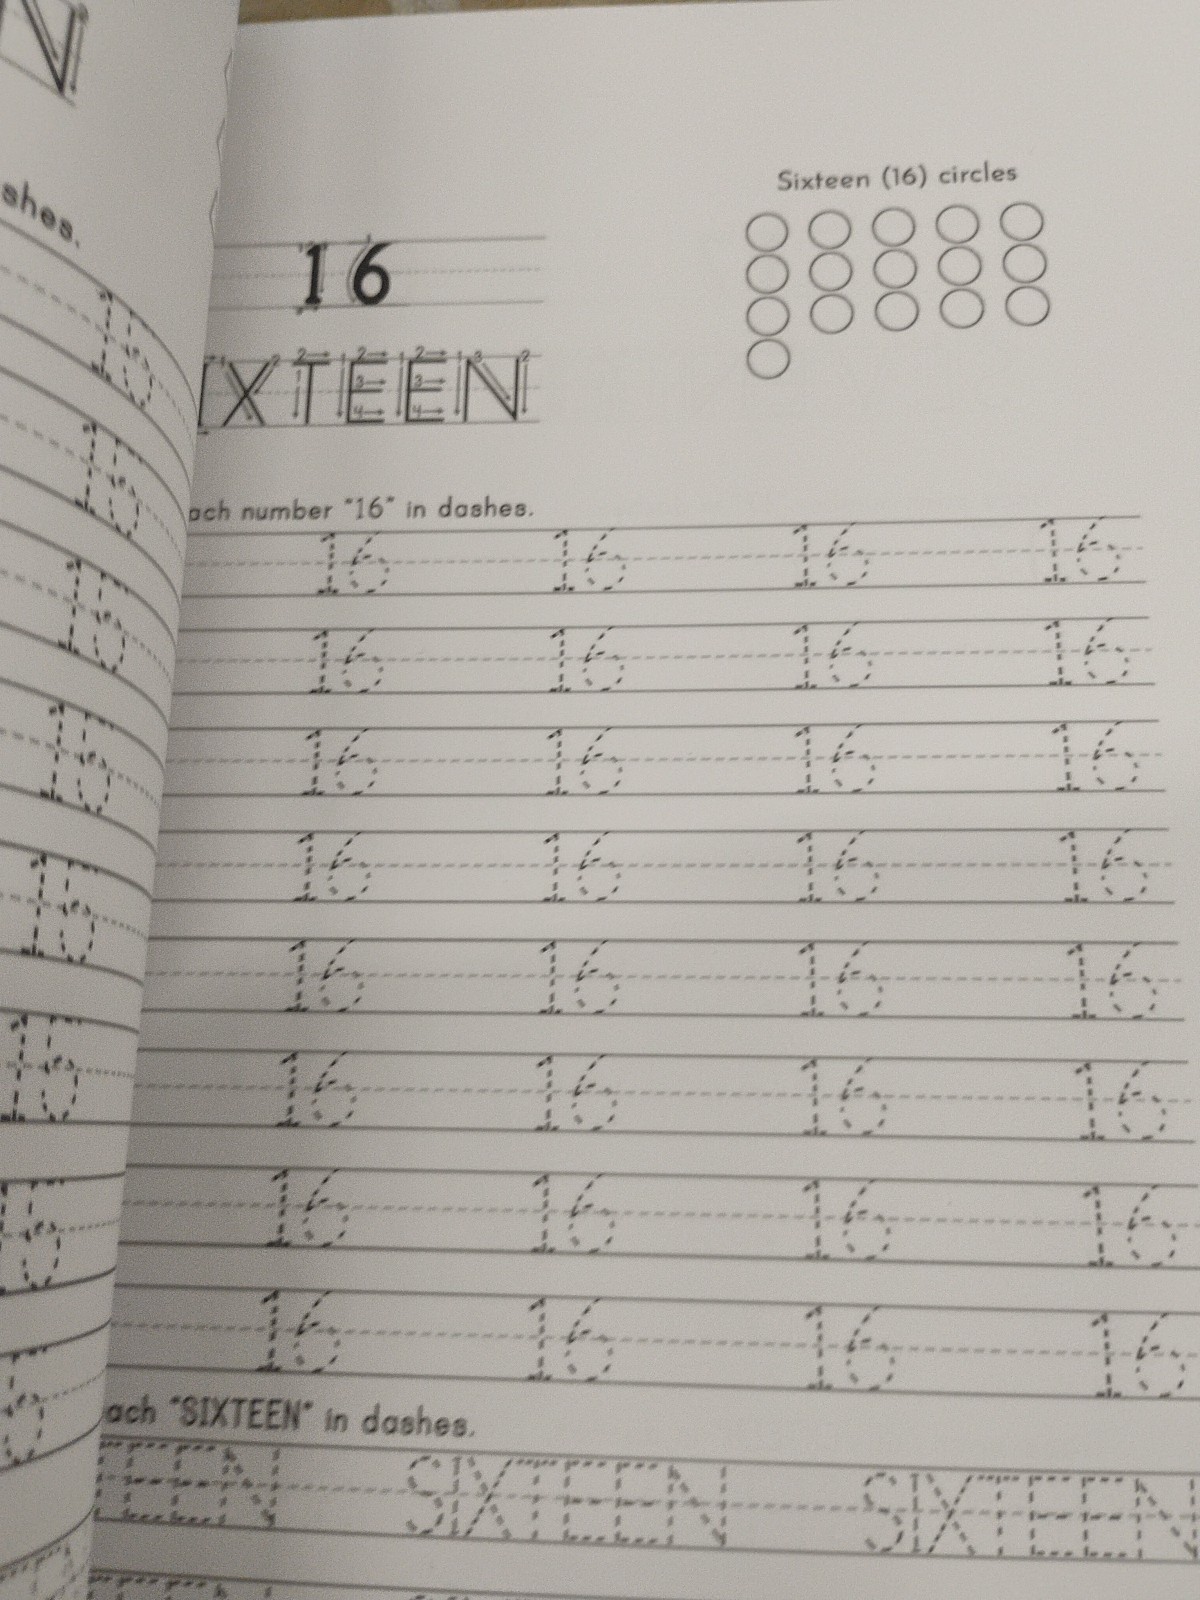 N
shes.
15
15
15
15
15
15
15
Sixteen (16) circles
16
IXTEEN
ach number "16" in dashes.
16 16 16 16
16 16 16 16
16 16 16 16
16 16 16 16
16 16 16 16
16 16 16 16
16 16 16 16
16 16 16 16
ach "SIXTEEN" in dashes.
EEN SIXTEEN SIXTEEN